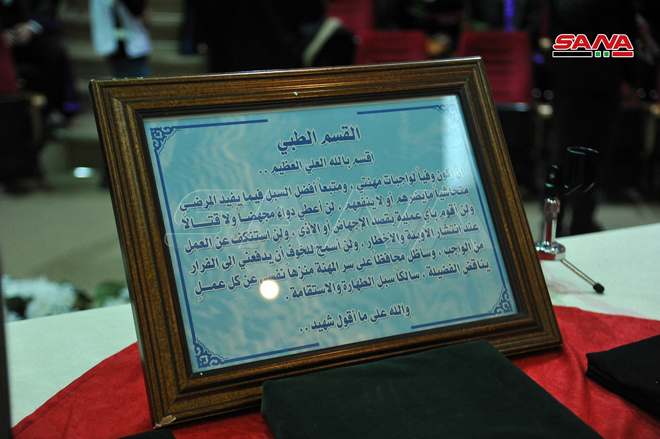 SANA
القسم الطبي
اقسم بالله العلي العظيم ..
أن أكون وفياً لواجبات مهنتي ، ومتبعاً أفضل السبل فيما يفيد المرضى
متحاشياً مايضرهم أو لاينفعهم ، لن أعطي دواءً مجهضاً ولا قتالاً
ولن أقوم بأي عملية بقصد الإجهاض أو الأذى ، ولن استنكف عن العمل
عند انتشار الأوبئة والأخطار ، ولن أسمح للخوف أن يدفعني إلى الفرار
من الواجب ، وسأظل محافظاً على سر المهنة منزهاً نفسي عن كل عمل
يناقض الفضيلة ، سالكاً سبل الطهارة والاستقامة .
والله على ما أقول شهيد ..